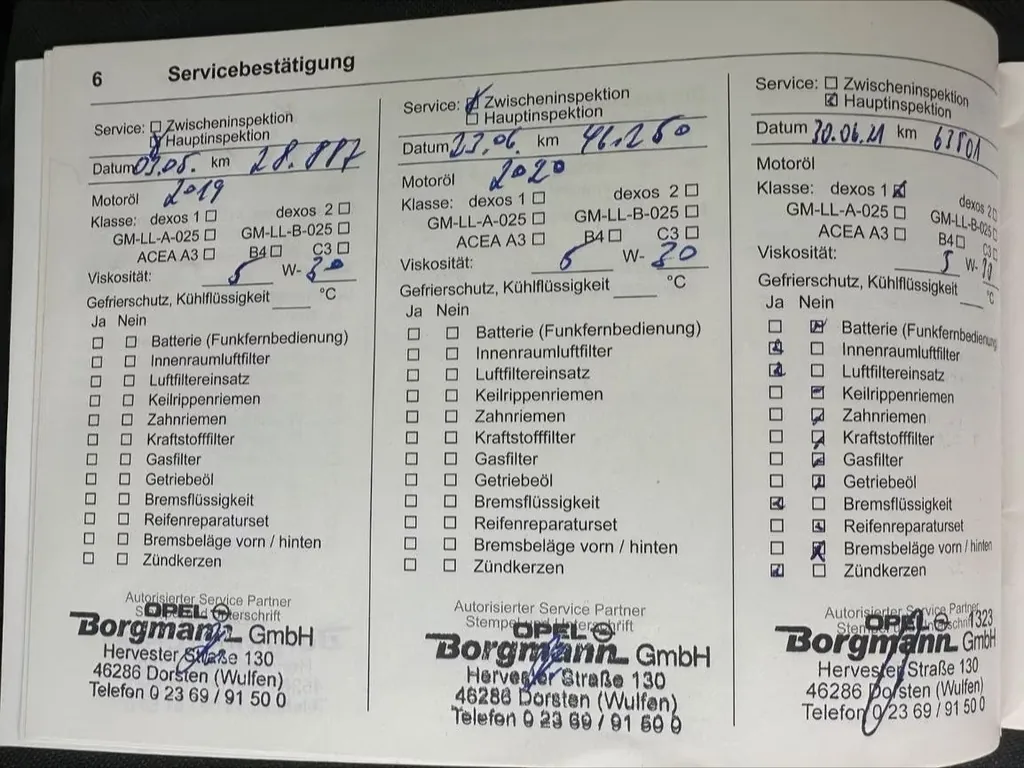 6 Servicebestätigung
Service: ☐ Zwischeninspektion
☒ Hauptinspektion
Datum 03.05. km 28.887
2019
Motoröl
Klasse: dexos 1 ☐ dexos 2 ☐
GM-LL-A-025 ☐ GM-LL-B-025 ☐
ACEA A3 ☐ B4 ☐ C3 ☐
Viskosität: 5 W- 30
Gefrierschutz, Kühlflüssigkeit ____ °C
Ja Nein
☐ ☐ Batterie (Funkfernbedienung)
☐ ☐ Innenraumluftfilter
☐ ☐ Luftfiltereinsatz
☐ ☐ Keilrippenriemen
☐ ☐ Zahnriemen
☐ ☐ Kraftstofffilter
☐ ☐ Gasfilter
☐ ☐ Getriebeöl
☐ ☐ Bremsflüssigkeit
☐ ☐ Reifenreparaturset
☐ ☐ Bremsbeläge vorn / hinten
☐ ☐ Zündkerzen
Autorisierter Service Partner
Stempel und Unterschrift
OPEL
Borgmann GmbH
Hervester Straße 130
46286 Dorsten (Wulfen)
Telefon 0 23 69 / 91 50 0
Service: ☒ Zwischeninspektion
☐ Hauptinspektion
Datum 23.06. km 46.260
2020
Motoröl
Klasse: dexos 1 ☐ dexos 2 ☐
GM-LL-A-025 ☐ GM-LL-B-025 ☐
ACEA A3 ☐ B4 ☐ C3 ☐
Viskosität: 5 W- 30
Gefrierschutz, Kühlflüssigkeit ____ °C
Ja Nein
☐ ☐ Batterie (Funkfernbedienung)
☐ ☐ Innenraumluftfilter
☐ ☐ Luftfiltereinsatz
☐ ☐ Keilrippenriemen
☐ ☐ Zahnriemen
☐ ☐ Kraftstofffilter
☐ ☐ Gasfilter
☐ ☐ Getriebeöl
☐ ☐ Bremsflüssigkeit
☐ ☐ Reifenreparaturset
☐ ☐ Bremsbeläge vorn / hinten
☐ ☐ Zündkerzen
Autorisierter Service Partner
Stempel und Unterschrift
OPEL
Borgmann GmbH
Hervester Straße 130
46286 Dorsten (Wulfen)
Telefon 0 23 69 / 91 50 0
Service: ☐ Zwischeninspektion
☒ Hauptinspektion
Datum 30.06.21 km 63501
Motoröl
Klasse: dexos 1 ☒ dexos 2 ☐
GM-LL-A-025 ☐ GM-LL-B-025 ☐
ACEA A3 ☐ B4 ☐ C3 ☐
Viskosität: 5 W- 30
Gefrierschutz, Kühlflüssigkeit ____ °C
Ja Nein
☐ ☒ Batterie (Funkfernbedienung)
☒ ☐ Innenraumluftfilter
☒ ☐ Luftfiltereinsatz
☐ ☒ Keilrippenriemen
☐ ☒ Zahnriemen
☐ ☒ Kraftstofffilter
☐ ☒ Gasfilter
☐ ☒ Getriebeöl
☒ ☐ Bremsflüssigkeit
☐ ☒ Reifenreparaturset
☐ ☒ Bremsbeläge vorn / hinten
☒ ☐ Zündkerzen
Autorisierter Service Partner
Stempel und Unterschrift 1323
OPEL
Borgmann GmbH
Hervester Straße 130
46286 Dorsten (Wulfen)
Telefon 0 23 69 / 91 50 0